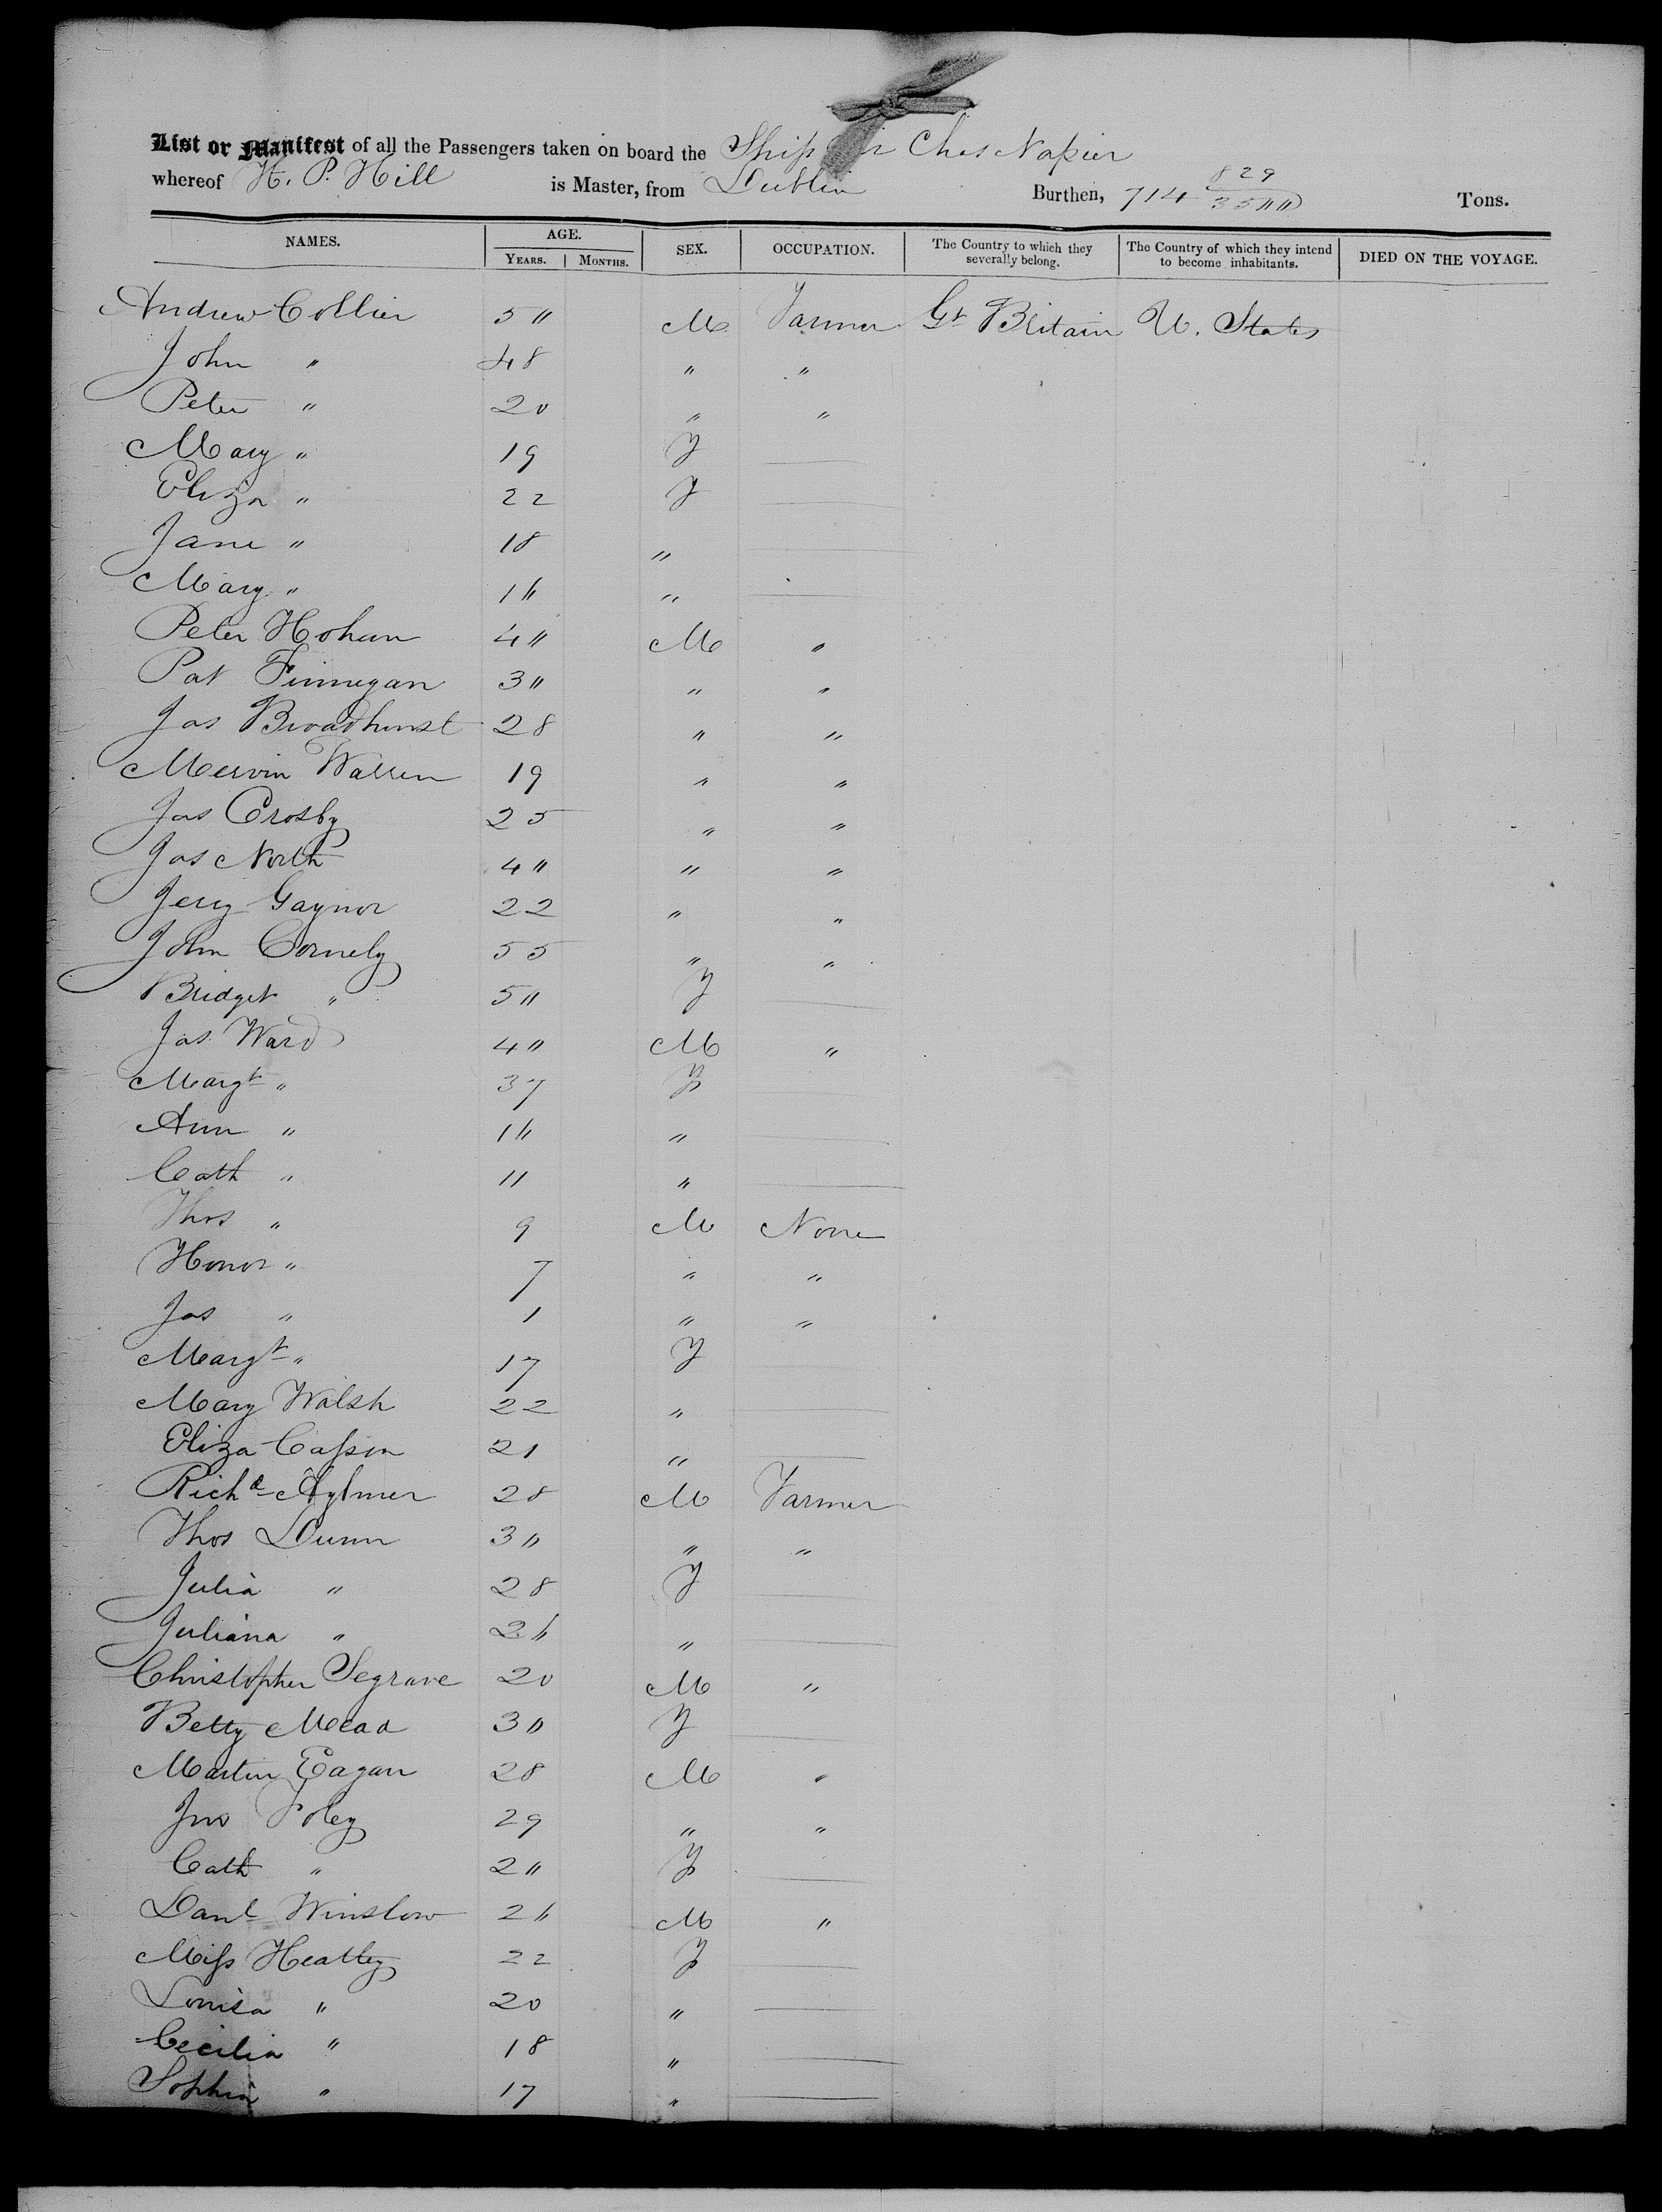 List or Manifest of all the Passengers taken on board the Ship Chas Napier
whereof H. P. Hill is Master, from Dublin Burthen, 714 829/3500 Tons.
NAMES. AGE. YEARS. MONTHS. SEX. OCCUPATION. The Country to which they severally belong. The Country of which they intend to become inhabitants. DIED ON THE VOYAGE.
Andrew Collier 50 M Farmer Gt Britain U. States
John " 48 " "
Peter " 20 " "
Mary " 19 F
Eliza " 22 F
Jane " 18 "
Mary " 16 "
Peter Hohun 40 M "
Pat Finnegan 30 " "
Jas Broadhurst 28 " "
Mervin Warren 19 " "
Jas Crosby 25 " "
Jas North 40 " "
Jery Gaynor 22 " "
John Cornely 55 " "
Bridget " 50 F
Jas Ward 40 M "
Margt " 37 F
Ann " 16 "
Cath " 11 "
Thos " 9 M None
Honor " 7 " "
Jas " 1 " "
Margt " 17 F
Mary Walsh 22 "
Eliza Cassin 21 "
Richd Aylmer 28 M Farmer
Thos Dunn 30 " "
Julia " 28 F
Juliana " 26 "
Christopher Segrave 20 M "
Betty Mead 30 F
Martin Eagan 28 M "
Jno Foley 29 " "
Cath " 20 F
Danl Winslow 26 M "
Miss Heatley 22 F
Louisa " 20 "
Cecilia " 18 "
Sophia " 17 "